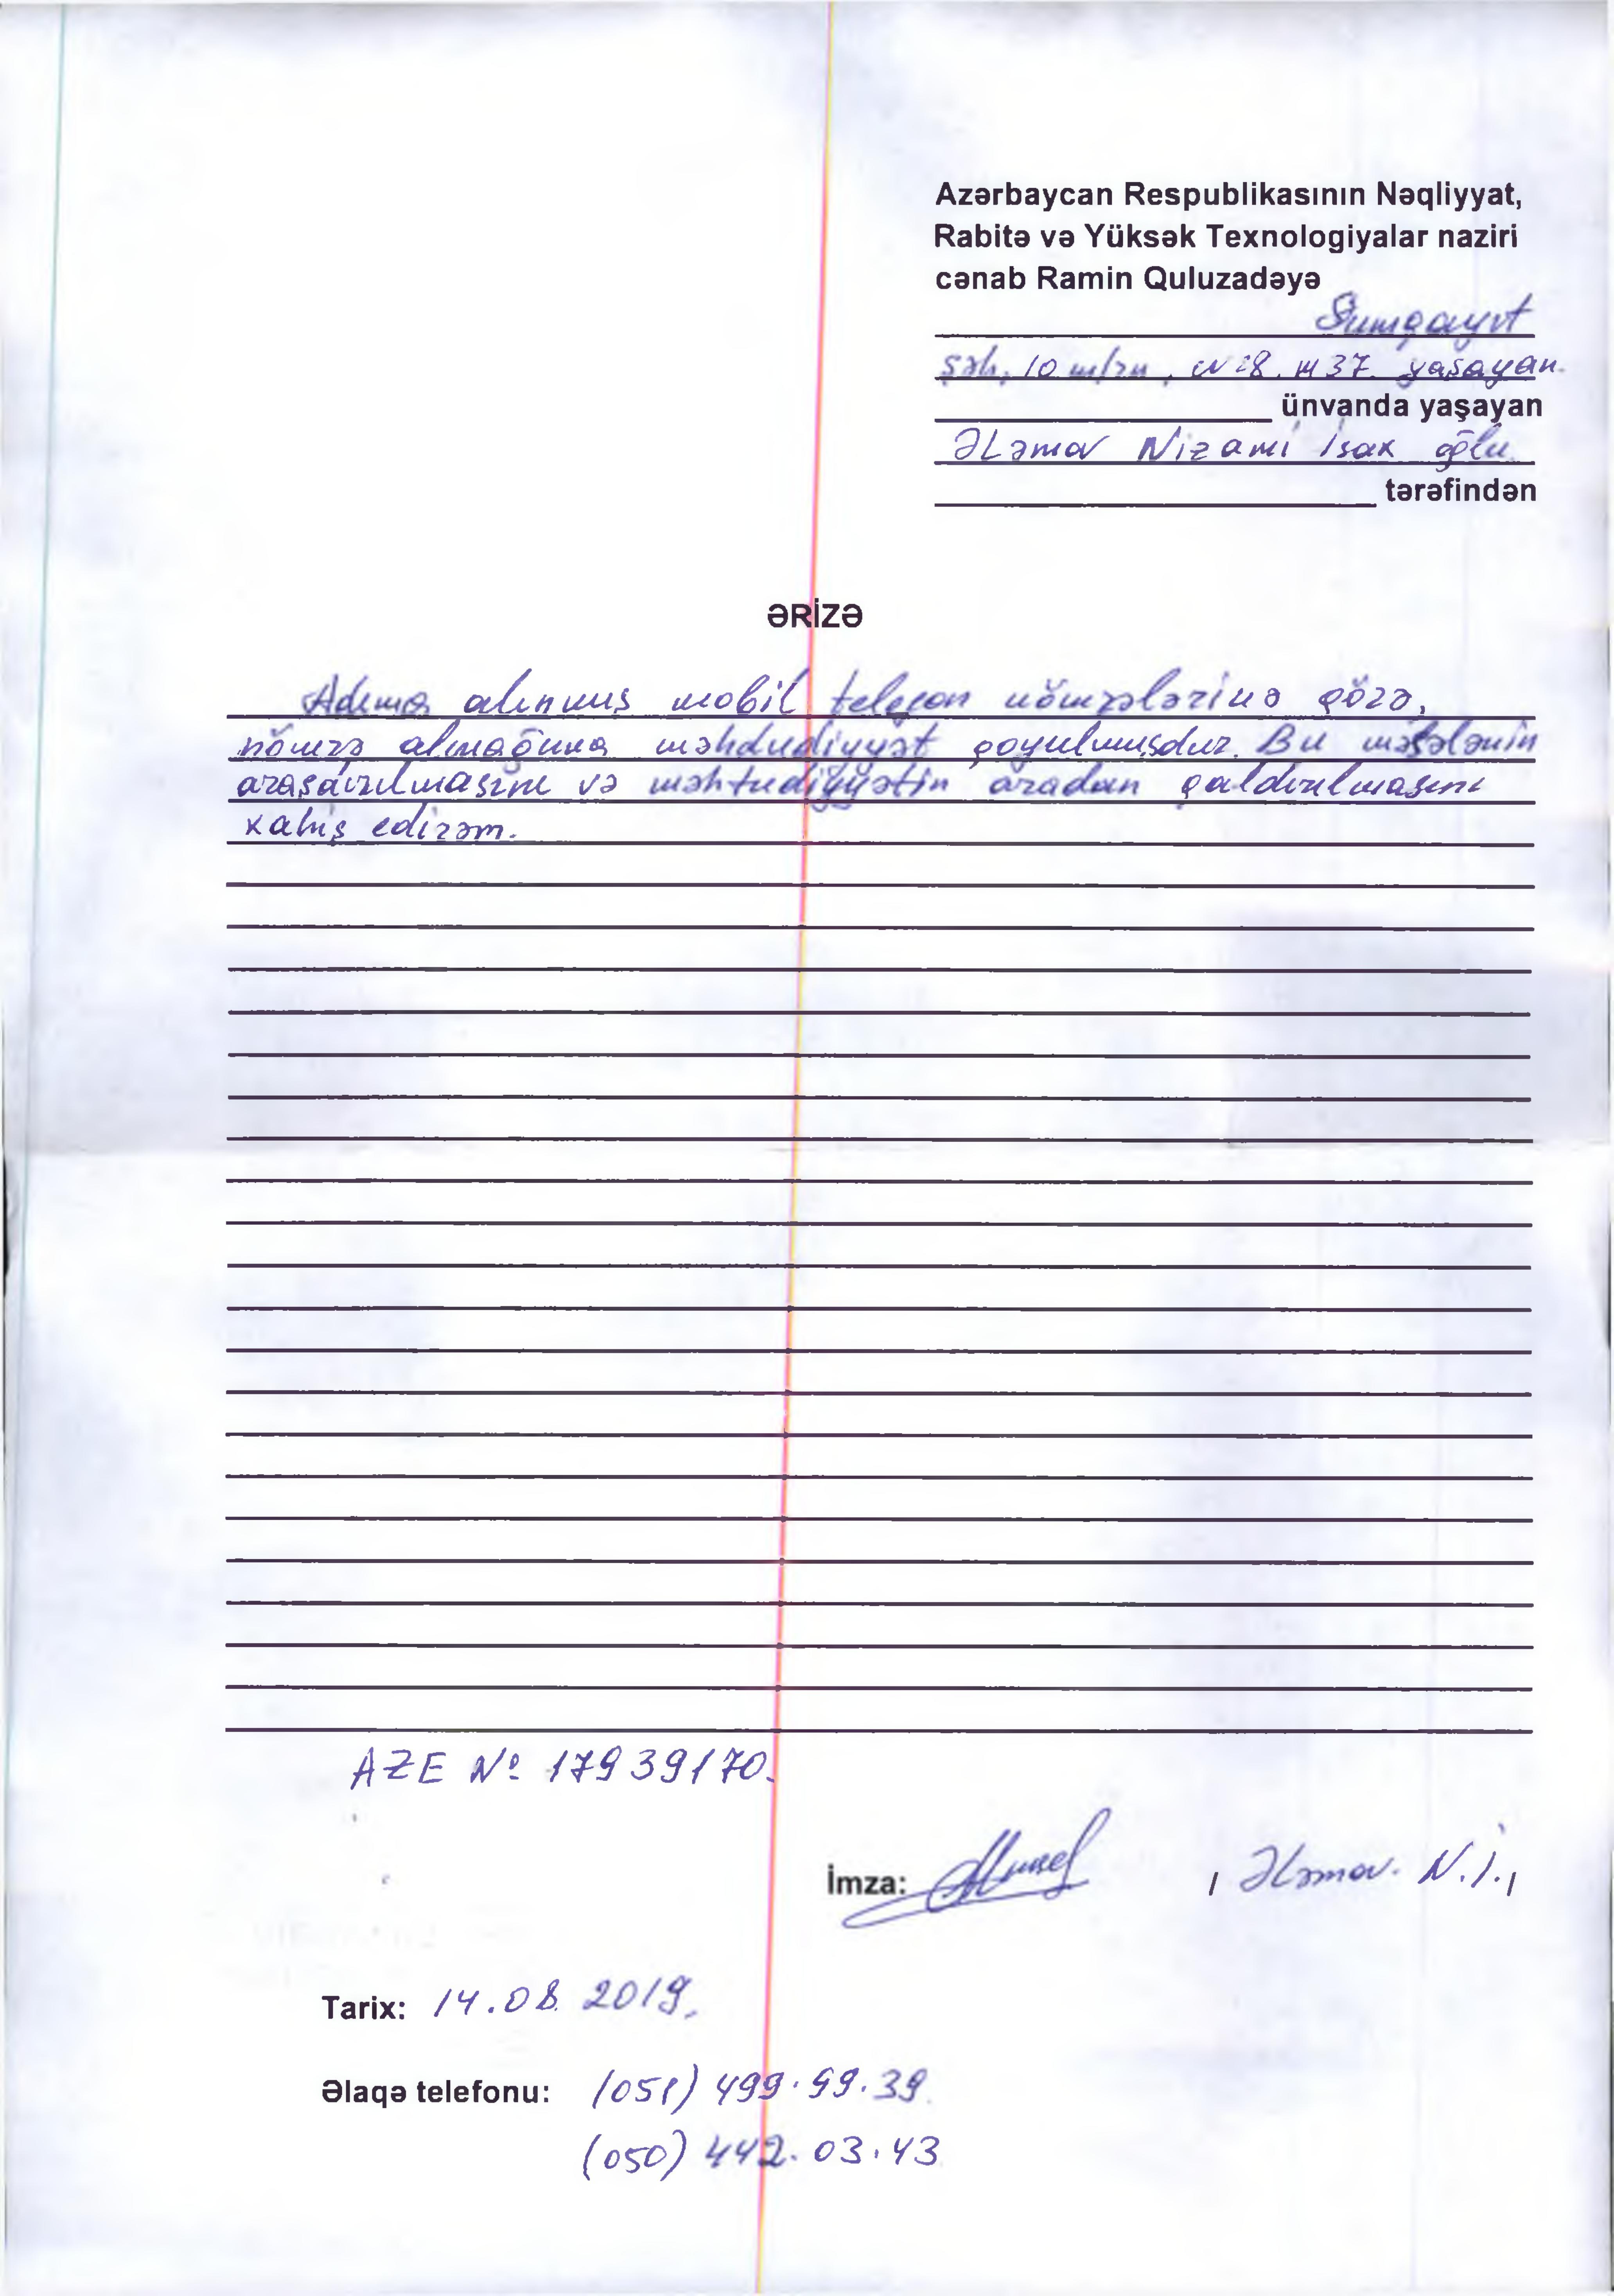 Azərbaycan Respublikasının Nəqliyyat,
Rabitə və Yüksək Texnologiyalar naziri
cənab Ramin Quluzadəyə
Sumqayıt
şəh. 10 m/rn, 28. m 37. yaşayan.
ünvanda yaşayan
Ələmov Nizami İsax oğlu
tərəfindən
ƏRİZƏ
Adıma alınmış mobil telefon nömrələrinə görə,
nömrə almağıma məhdudiyyət qoyulmuşdur. Bu məsələnin
araşdırılmasını və məhtudiyyətin aradan qaldırılmasını
xahiş edirəm.
AZE № 17939170.
İmza: / Ələmov. N.İ. /
Tarix: 14.08.2019.
Əlaqə telefonu: (051) 499.99.39.
(050) 442.03.43